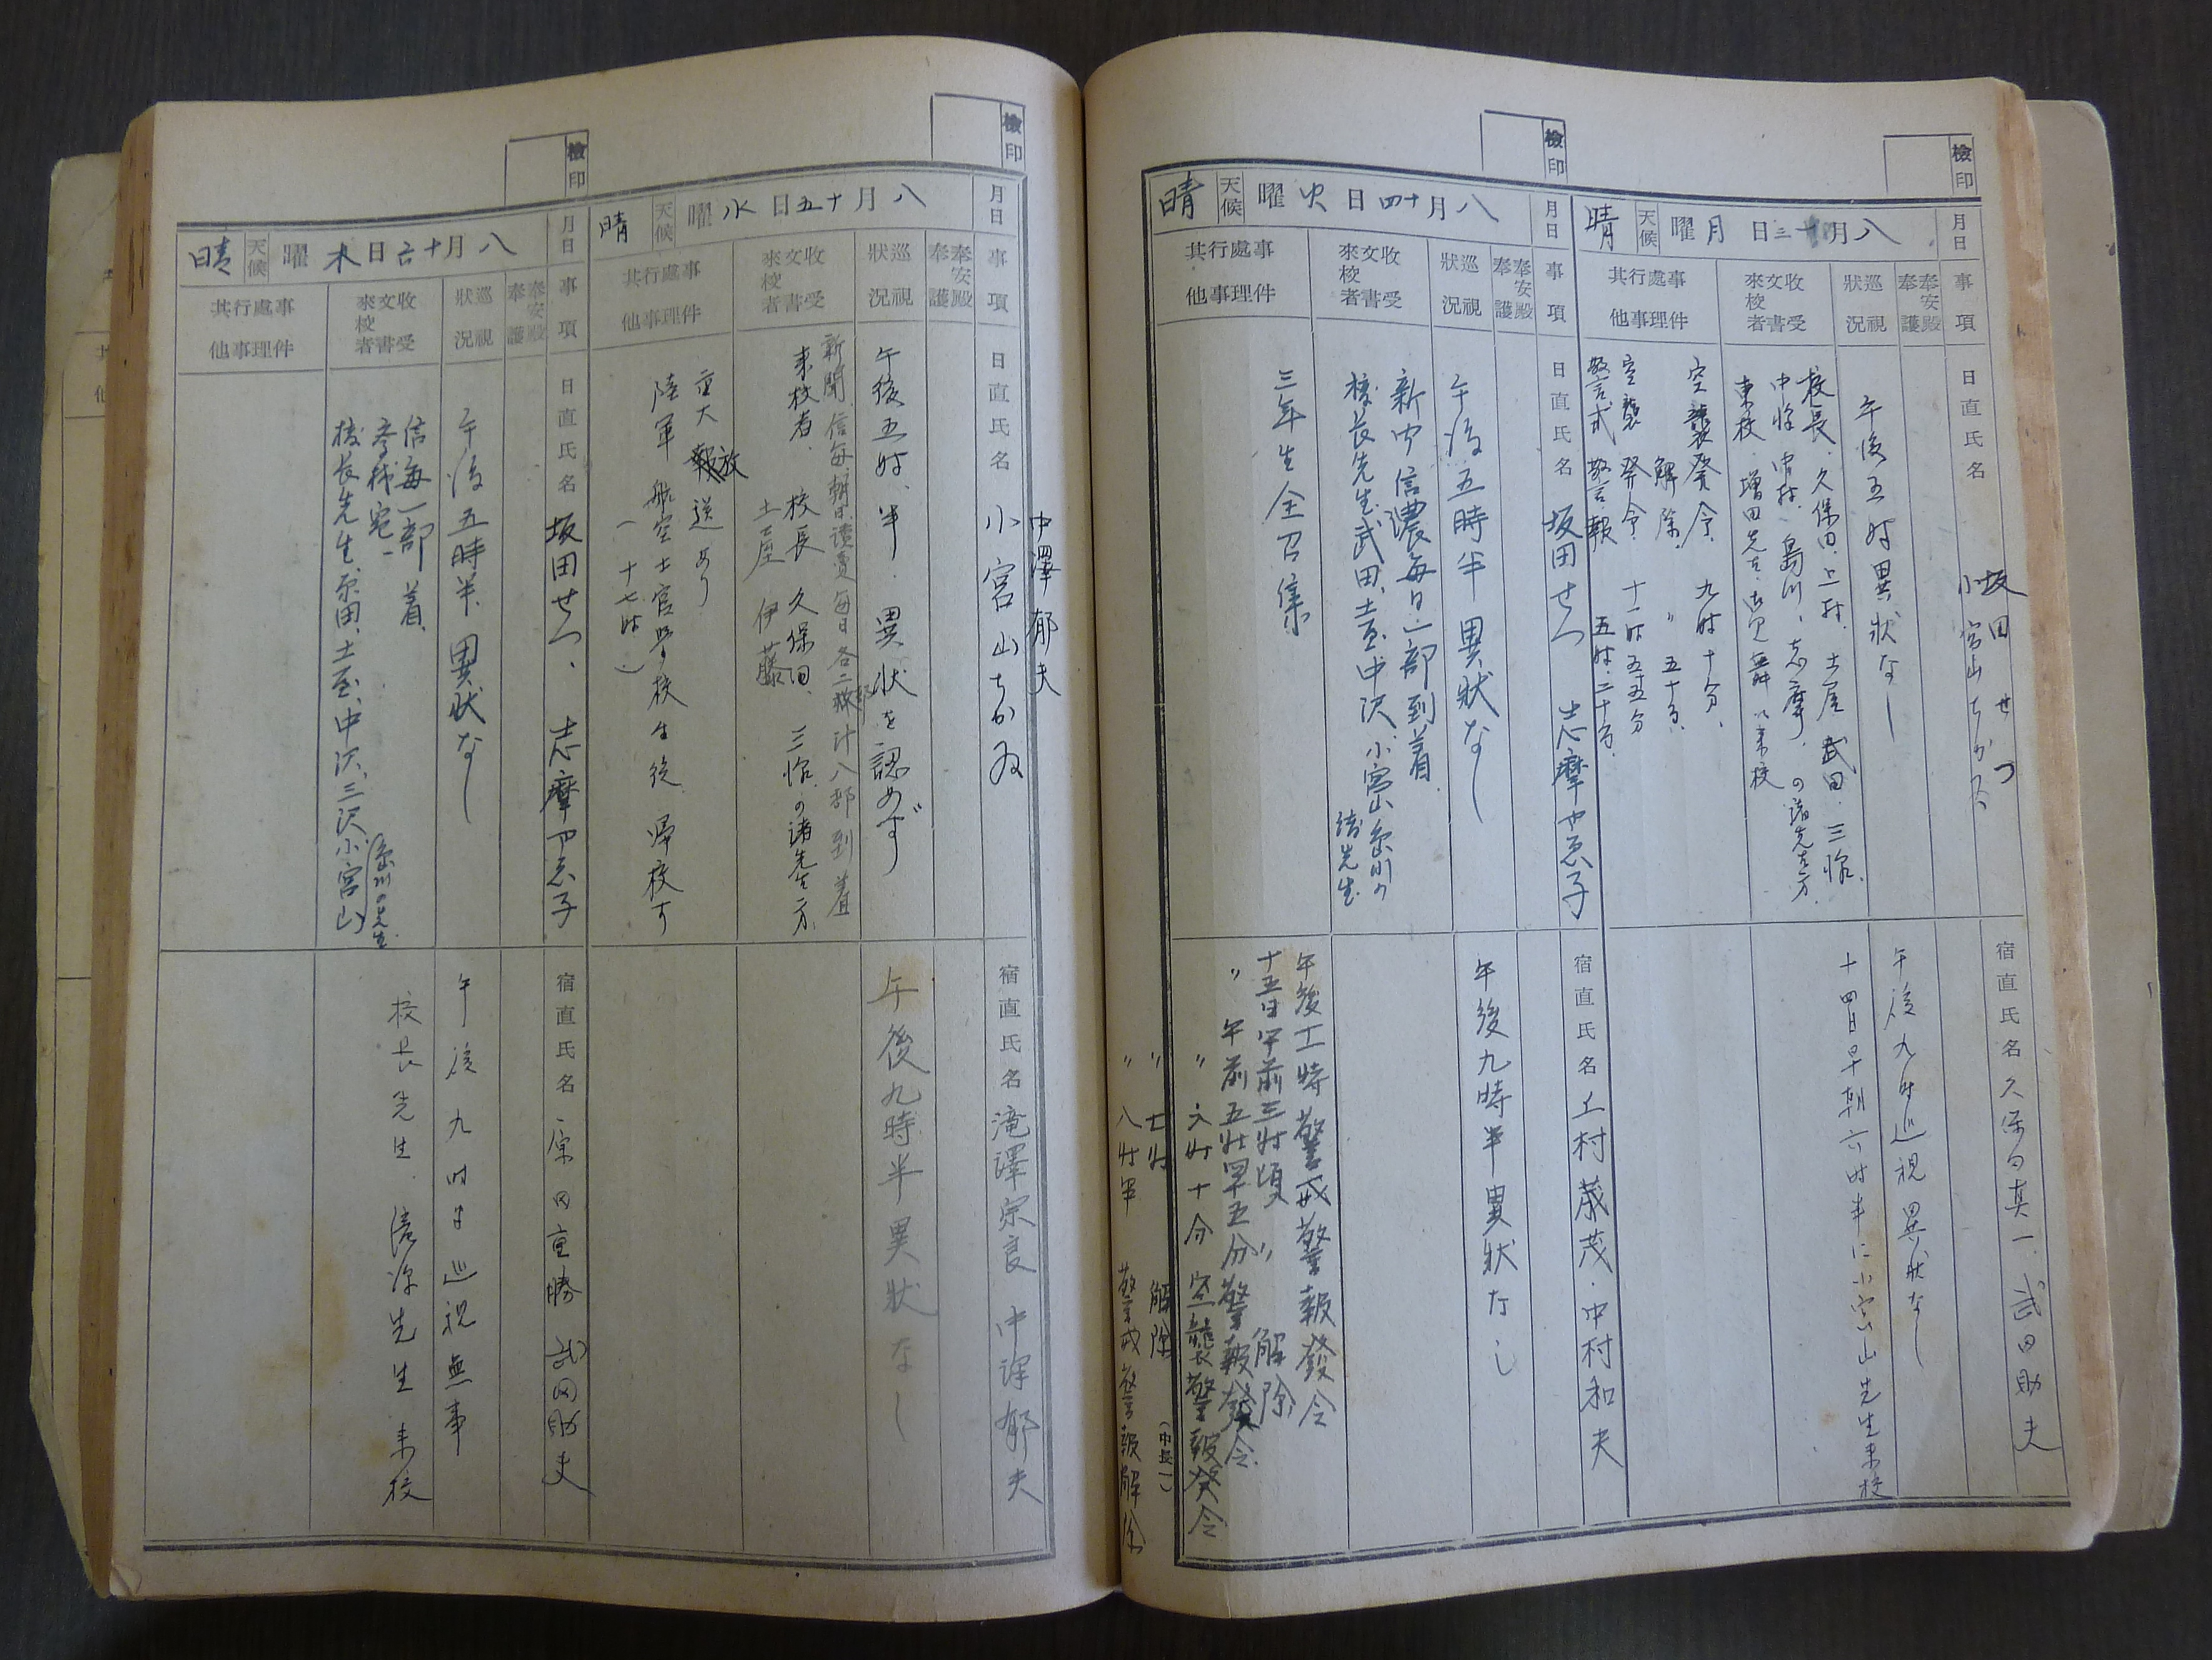 檢印
月日
八月十三日 月曜
天候
晴
事項
奉安殿奉護
巡視狀況
收受文書來校者
事件處理行事其他
日直氏名
坂田せつ
小宮山ちかゐ
午後五時異狀なし
校長、久保田、上村、土屋、武田、三
中村、島川、志摩、の諸先生方
來校
空襲發令、九時十分、
解除、〃五十分、
空襲發令、十一時五五分
警報 五時二十分、
宿直氏名
久保田真一、武田助夫
午後九時巡視異狀なし
十四日早朝六時半に小宮山先生来校
檢印
月日
八月十四日 火曜
天候
晴
事項
奉安殿奉護
巡視狀況
收受文書來校者
事件處理行事其他
日直氏名
坂田せつ 志摩やゑ子
午後五時半異狀なし
新聞 信濃毎日、一部到着、
校長先生、武田、土屋、中沢、小宮山
諸先生
三年生全召集
宿直氏名
上村茂・中村和夫
午後九時半異狀なし
警戒警報發令
十五日午前三時頃 〃 解除
〃 午前五時四五分警報發令
〃 六時十分 空襲警報發令
〃 七時 解除
〃 八時半 警戒警報解除
檢印
月日
八月十五日 水曜
天候
晴
事項
奉安殿奉護
巡視狀況
收受文書來校者
事件處理行事其他
日直氏名
小宮山ちかゐ
中澤郁夫
午後五時半 異狀を認めず
新聞 信毎、朝日、讀賣、毎日各二部計八部到着
来校者、校長 久保田、の諸先生方、
土屋 伊藤
重大放送あり
陸軍航空士官学校生徒 帰校す
(十七時)
宿直氏名
滝澤宗良 中澤郁夫
午後九時半異狀なし
檢印
月日
八月十六日 木曜
天候
晴
事項
奉安殿奉護
巡視狀況
收受文書來校者
事件處理行事其他
日直氏名
坂田せつ、志摩やゑ子
午後五時半、異狀なし
信毎一部 着、
校長先生、土屋、中沢、三沢、小宮山
の先生
宿直氏名
武田助夫
午後九時半巡視無事
校長先生、先生来校